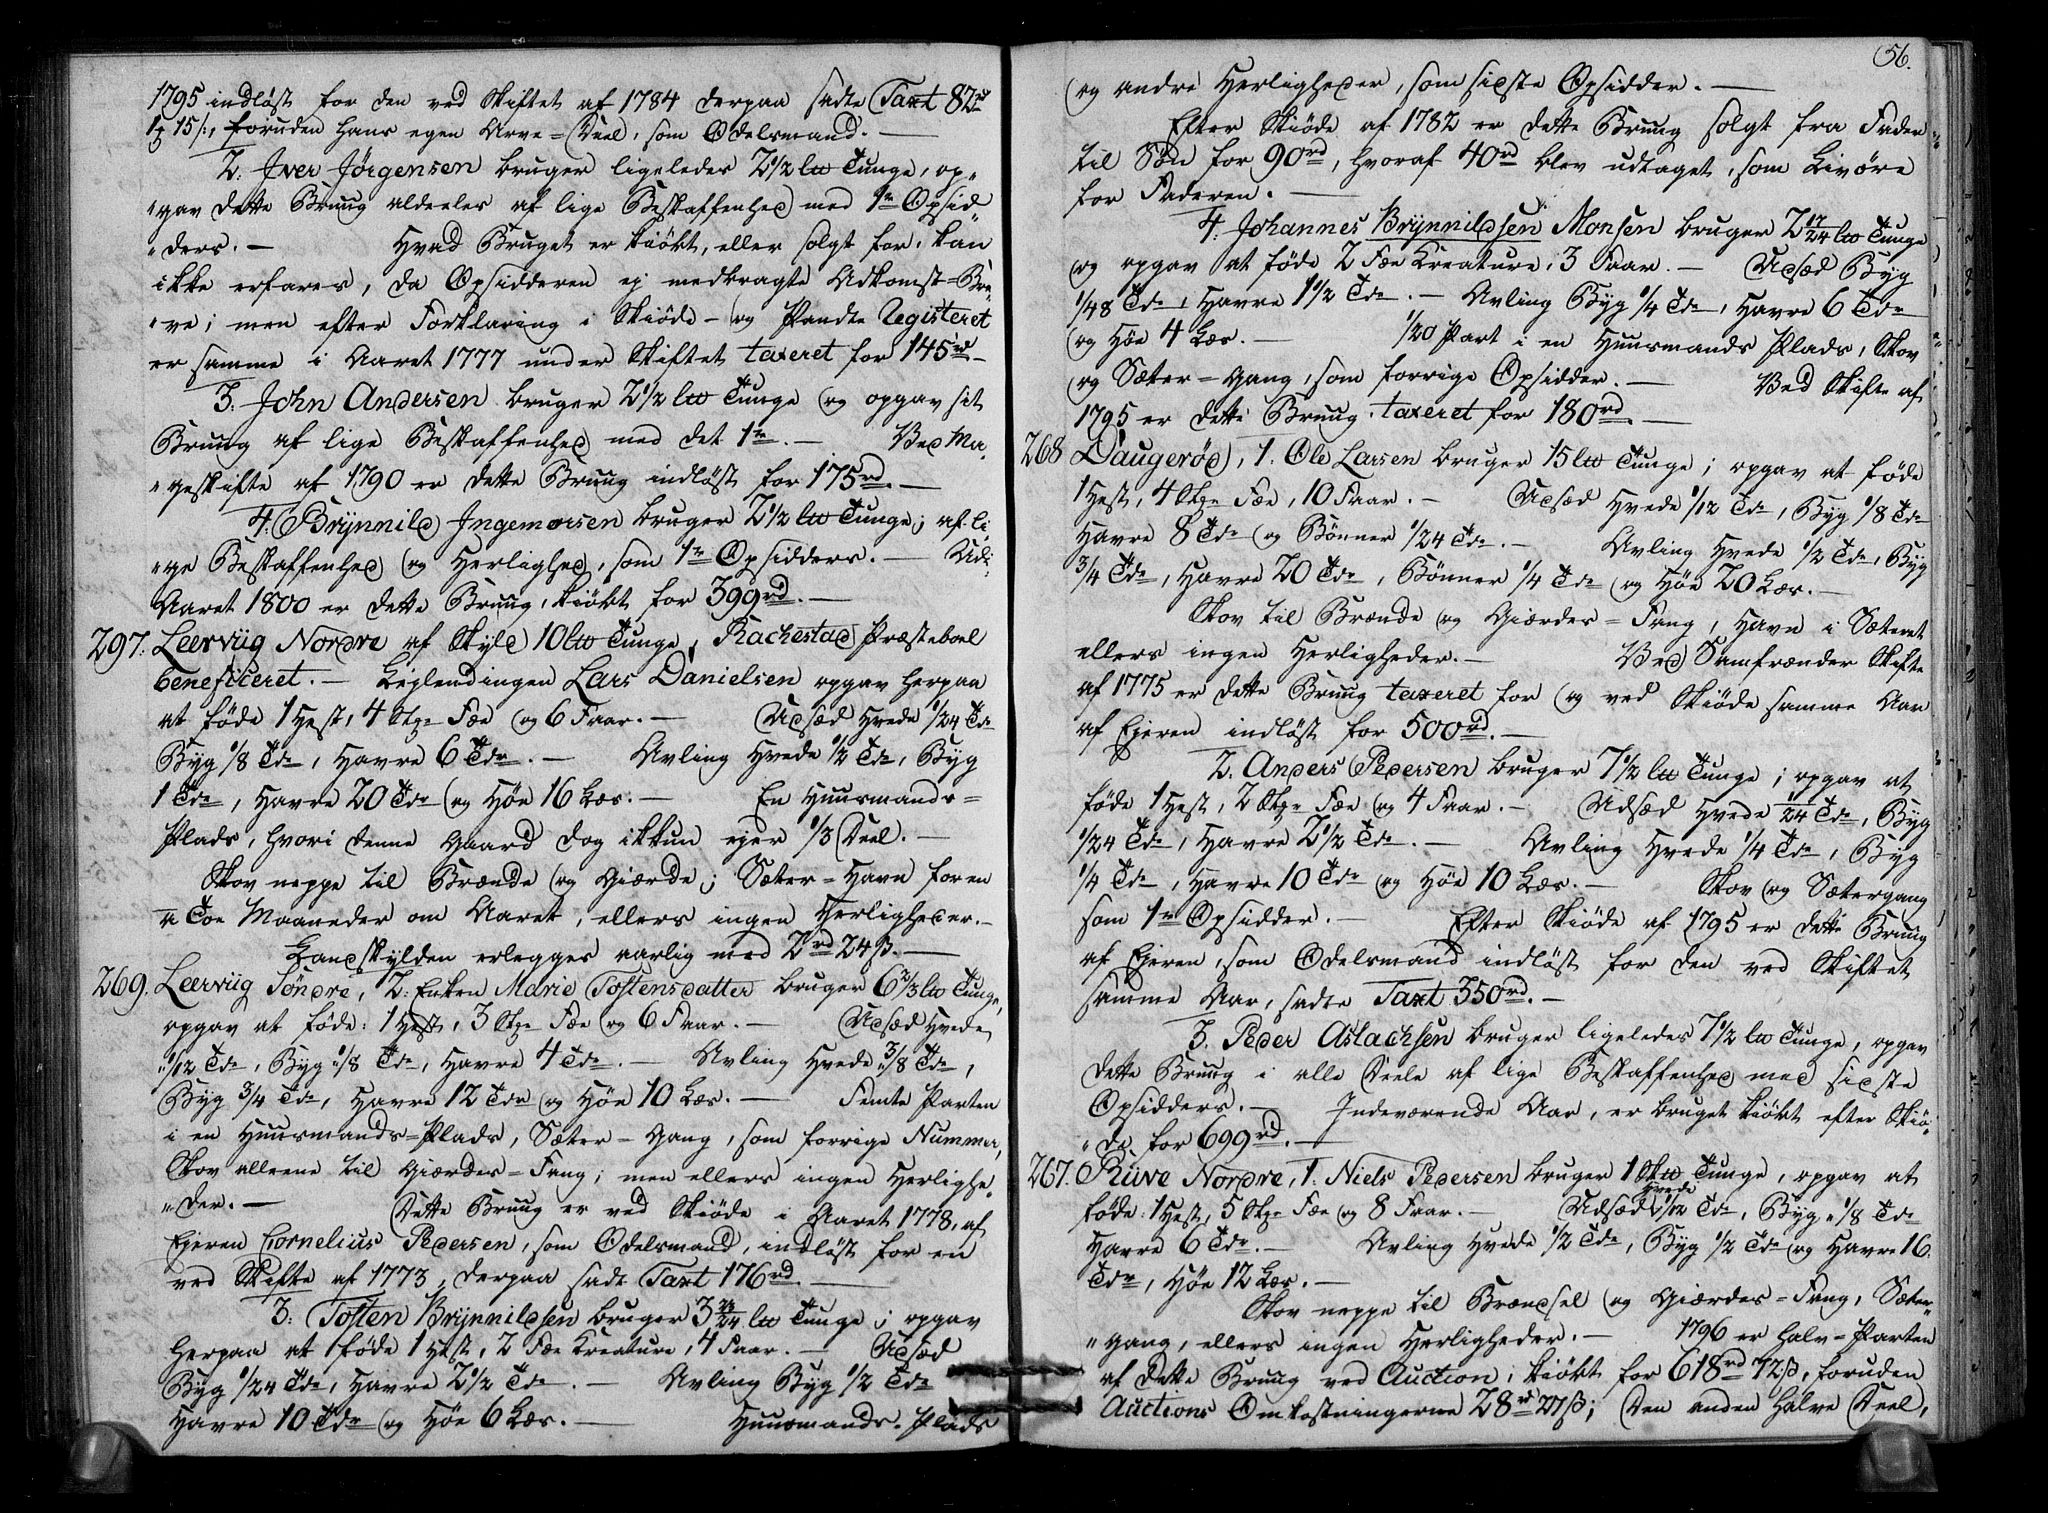 1795 indløst for den ved Skiftet af 1784 derpaa sadte Taxt 82rd
1 15 s:, foruden hans egen Arve=Deel, som Odelsmand. —
2. Iver Jørgensen bruger ligeledes 2 1/2 lb Tunge, op„
„gav dette Bruug aldeeles af lige Beskaffenhed med 1te Opsid„
„ders. — Hvad Bruget er kiøbt, eller solgt for, kan
ikke erfares, da Opsidderen ej medbragte Adkomst=Bre„
„ve; men efter Forklaring i Skiøde- og Pandte Registeret
er samme i Aaret 1777 under Skiftet taxeret for 145rd. —
3. John Andersen bruger 2 1/2 lb Tunge og opgav sit
Bruug af lige Beskaffenhed med det 1te. — Ved Ma„
„geskifte af 1790 er dette Bruug indløst for 175rd. —
4. Brynnild Ingemorsen bruger 2 1/2 lb Tunge; af li„
„ge Beskaffenhed og Herlighed, som 1te Opsidders. — Udi
Aaret 1800 er dette Bruug kiøbt for 399rd. —
297. Leerviig Nordre af Skyld 10 lb Tunge, Rachestad Præsteboel
beneficeret. — Leylendingen Lars Danielsen opgav herpaa
at føde 1 Hest, 4 Stkr Fæe og 6 Faar. — Udsæd Hvede 1/24 Tde
Byg 1/8 Tde, Havre 6 Tdr. — Avling Hvede 1/2 Tde, Byg
1 Tde, Havre 20 Tdr og Høe 16 Læs. — En Huusmands=
Plads, hvori denne Gaard dog ikkun ejer 1/3 Deel. —
Skov neppe til Brænde og Giærde; Sæter=Havn for en
á Toe Maaneder om Aaret, ellers ingen Herligheder. —
Landskylden erlegges aarlig med 2rd 24 ß. —
269. Leerviig Søndre, 2. Enken Marie Tostensdatter bruger 6 2/3 lb Tunge,
opgav at føde: 1 Hest, 3 Stkr Fæe og 6 Faar. — Udsæd Hvede
1/12 Tde, Byg 1/8 Tde, Havre 4 Tdr. — Avling Hvede 3/8 Tde,
Byg 3/4 Tde, Havre 12 Tdr og Høe 10 Læs. — Femte Parten
i en Huusmands=Plads, Sæter=Gang, som forrige Nummer,
Skov alleene til Giærdes=Fang; men ellers ingen Herlighe„
„der. — Dette Bruug er ved Skiøde i Aaret 1778, af
Ejeren Cornelius Pedersen, som Odelsmand, indløst for en
ved Skifte af 1773, derpaa sadt Taxt 176rd. —
3: Tosten Brynnildsen bruger 3 23/24 lb Tunge; opgav
herpaa at føde 1 Hest, 2 Fæe Kreature, 4 Faar. — Udsæd
Byg 1/24 Tde, Havre 2 1/2 Tde. — Avling Byg 1/2 Tde
Havre 10 Tdr og Høe 6 Læs. — Huusmands-Plads
56.
og andre Herligheder, som sidste Opsidder. —
Efter Skiøde af 1782 er dette Bruug solgt fra Fader
til Søn for 90rd, hvoraf 40rd blev udtaget, som Livøre
for Faderen. —
4. Johannes Brynnildsen Monsen bruger 2 17/24 lb Tunge
og opgav at føde 2 Fæe Kreature, 3 Faar. — Udsæd Byg
1/48 Tde, Havre 1 1/2 Tde. — Avling Byg 1/4 Tde, Havre 6 Tdr
og Høe 4 Læs. — 1/20 Part i en Huusmands Plads, Skov
og Sæter=Gang, som forrige Opsidder. — Ved Skifte af
1795 er dette Bruug taxeret for 180rd. —
268 Daugerød, 1. Ole Larsen bruger 15 lb Tunge; opgav at føde
1 Hest, 4 Stkr Fæe, 10 Faar. — Udsæd Hvede 1/12 Tde, Byg 1/8 Tde
Havre 8 Tdr og Bønner 1/24 Tde. — Avling Hvede 1/2 Tde, Byg
3/4 Tde, Havre 20 Tdr, Bønner 1/4 Tde og Høe 20 Læs. —
Skov til Brænde og Giærdes=Fang, Havn i Sæteret
ellers ingen Herligheder. — Ved Samfrænder Skifte
af 1775 er dette Bruug taxeret for og ved Skiøde samme Aar
af Ejeren indløst for 500rd. —
2. Anders Pedersen bruger 7 1/2 lb Tunge; opgav at
føde 1 Hest, 2 Stkr Fæe og 4 Faar. — Udsæd Hvede 1/24 Tde, Byg
1/24 Tde, Havre 2 1/2 Tde. — Avling Hvede 1/4 Tde, Byg
1/4 Tde, Havre 10 Tdr og Høe 10 Læs. — Skov og Sætergang
som 1te Opsidder. — Efter Skiøde af 1795 er dette Bruug
af Ejeren, som Odelsmand indløst for den ved Skiftet
samme Aar, sadte Taxt 350rd. —
3. Peder Aslachsen bruger ligeledes 7 1/2 lb Tunge, opgav
dette Bruug i alle Deele af lige Beskaffenhed med sidste
Opsidders. — Indeværende Aar, er bruget kiøbt efter Skiø„
„de for 699rd. —
267. Rüve Nordre, 1. Niels Pedersen bruger 1 Skb Tunge, opgav at
føde: 1 Hest, 5 Stkr Fæe og 8 Faar. — Udsæd Hvede 1/12 Tde, Byg 1/8 Tde
Havre 6 Tdr. — Avling Hvede 1/2 Tde, Byg 1/2 Tde og Havre 16
Tdr, Høe 12 Læs. —
Skov neppe til Brændsel og Giærdes=Fang, Sæter„
„gang, ellers ingen Herligheder. — 1796 er halv=Parten
af dette Bruug ved Auction, kiøbt for 618rd 72 ß, foruden
Auctions Omkostningerne 28rd 27 ß; Den anden halve Deel,